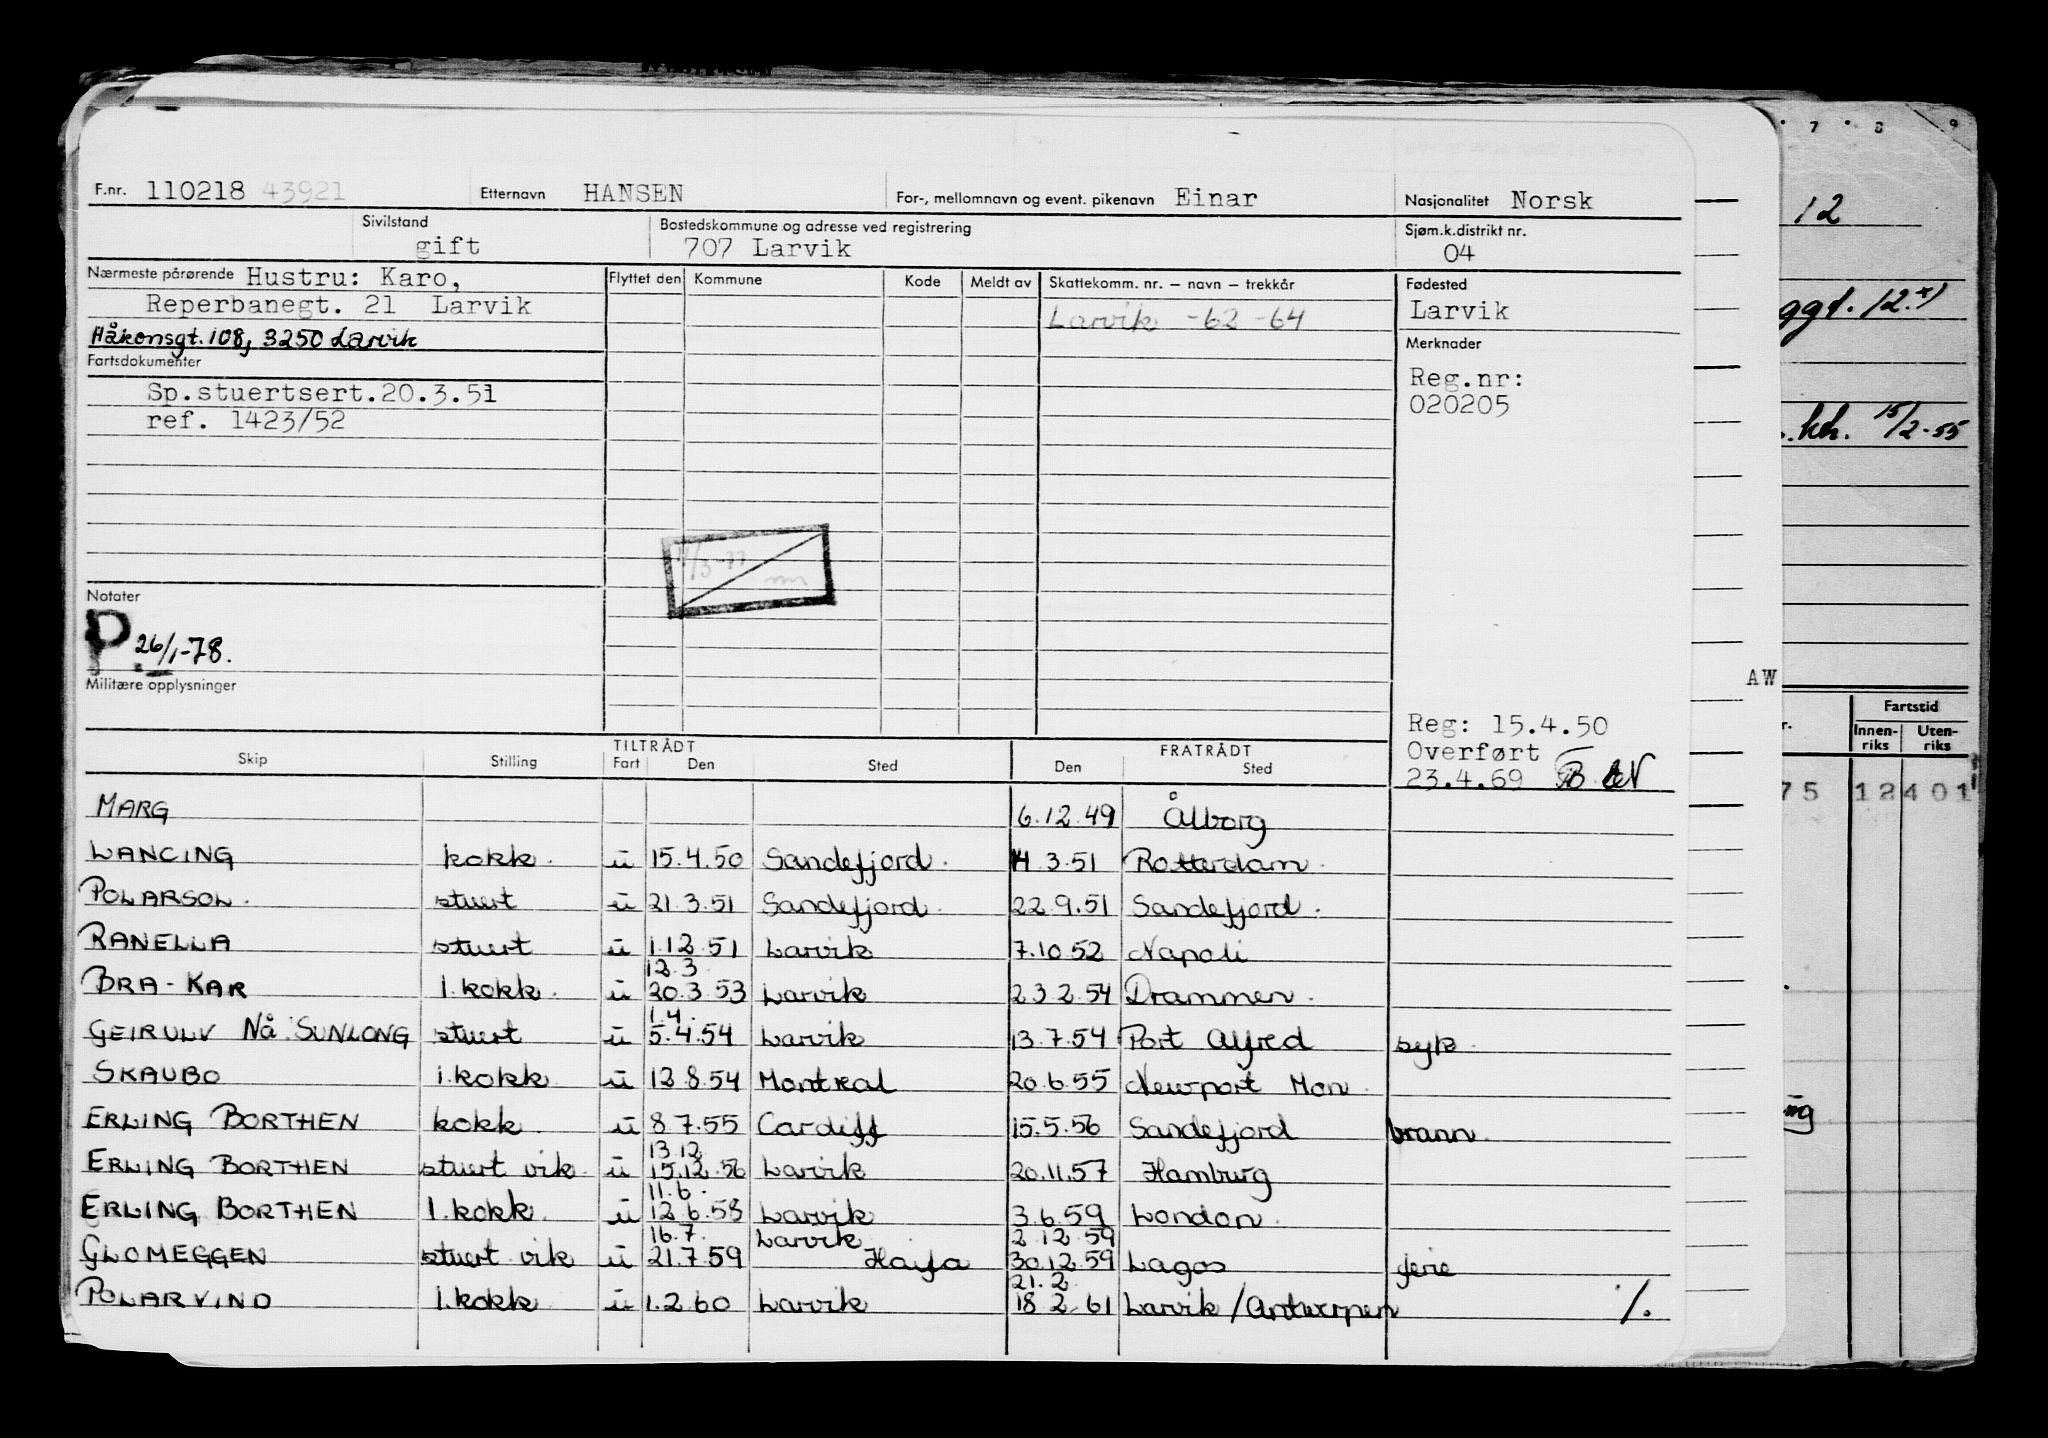 F.nr. 110218 43921 Etternavn HANSEN For-, mellomnavn og event. pikenavn Einar Nasjonalitet Norsk
Sivilstand gift Bostedskommune og adresse ved registrering 707 Larvik Sjøm.k.distrikt nr. 04
Nærmeste pårørende Hustru: Karo,
Reperbanegt. 21 Larvik
Håkonsgt. 108, 3250 Larvik
Flyttet den Kommune Kode Meldt av Skattekomm. nr. – navn – trekkår
Larvik -62 -64
Fødested
Larvik
Merknader
Reg.nr:
020205
Fartsdokumenter
Sp.stuertsert.20.3.51
ref. 1423/52
Notater
P. 26/1-78.
Militære opplysninger
Reg: 15.4.50
Overført
23.4.69
TILTRÅDT FRATRÅDT
Skip Stilling Fart Den Sted Den Sted
MARG 6.12.49 Ålborg
LANCING kokk u 15.4.50 Sandefjord 14.3.51 Rotterdam
POLARSOL stuert u 21.3.51 Sandefjord 22.9.51 Sandefjord
RANELLA stuert u 1.12.51 Larvik 7.10.52 Napoli
12.3
BRA-KAR 1.kokk u 20.3.53 Larvik 23.2.54 Drammen
1.4.
GEIRULV Nå: SUNLONG stuert u 5.4.54 Larvik 13.7.54 Port Alfred syk
SKAUBO 1.kokk u 12.8.54 Montreal 20.6.55 Newport Mon
ERLING BORTHEN kokk u 8.7.55 Cardiff 15.5.56 Sandefjord brann
13.12
ERLING BORTHEN stuert vik u 15.12.56 Larvik 20.11.57 Hamburg
11.6.
ERLING BORTHEN 1.kokk u 12.6.58 Larvik 3.6.59 London
16.7. Larvik 2.12.59
GLOMEGGEN stuert vik u 21.7.59 Haifa 30.12.59 Lagos ferie
21.2
POLARVIND 1.kokk u 1.2.60 Larvik 18.2.61 Larvik/Antwerpen ./.
7 8 9
12
ggt. 12.x)
kh. 15/2-55
AW
Fartstid
Innen-riks Uten-riks
75 12401